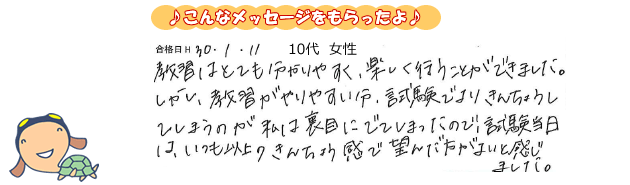 ♪こんなメッセージをもらったよ♪
合格日 H 30・1・11 10代 女性
教習はとても分かりやすく、楽しく行うことができました。
しかし、教習がやりやすい分、試験でよりきんちょうし
てしまうのが私は裏目にでてしまったので、試験当日
は、いつも以上のきんちょう感で望んだ方がよいと感じ
ました。